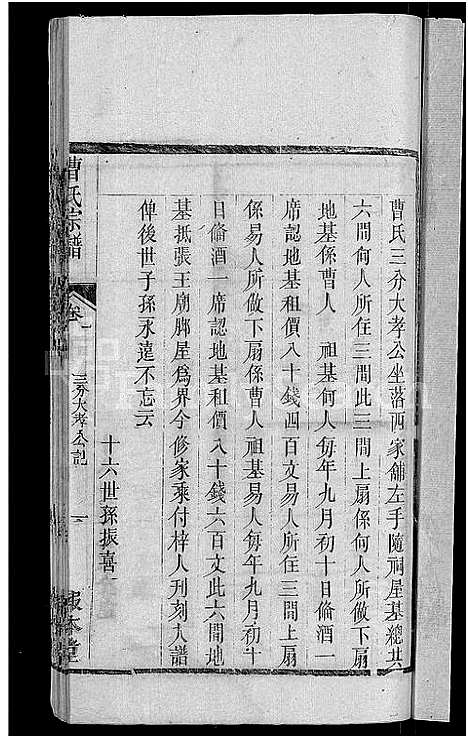 曹氏三分大孝公坐落西家舖左手隨祠屋基總共
六間何人所住三間此三間上扇係何人所做下扇
地基係曹人　祖基何人每年九月初十日俻酒一
席認地基租價八十錢四百文易人所住三間上扇
係易人所做下扇係曹人祖基易人每年九月初十
日俻酒一席認地基租價八十錢六百文此六間地
基抵張王廟脚屋爲界今修家乘付梓人刊刻大譜
俾後世子孫永遠不忘云
十六世孫振喜
曹氏宗譜
卷一
三分大孝公記
一
報本堂